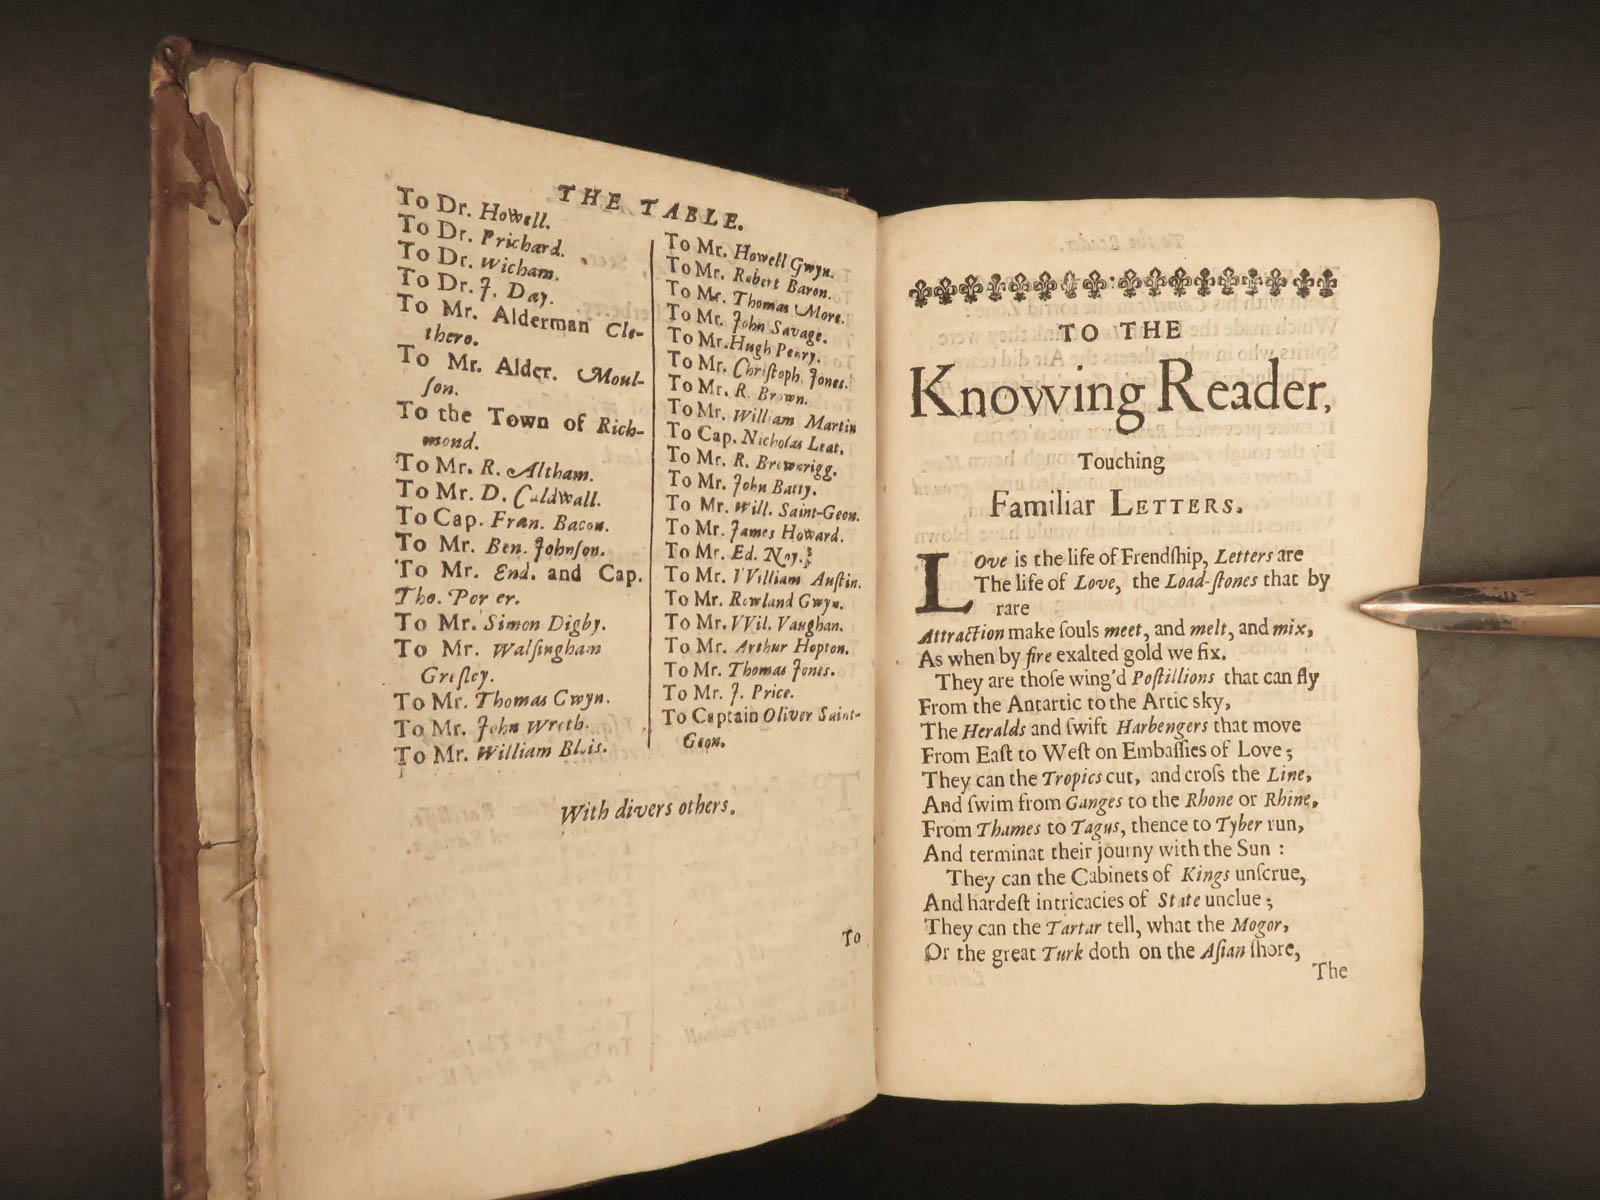 THE TABLE.
To Dr. Howell.
To Dr. Prichard.
To Dr. Wicham.
To Dr. J. Day.
To Mr. Alderman Cle-
thero.
To Mr. Alder. Moul-
ſon.
To the Town of Rich-
mond.
To Mr. R. Altham.
To Mr. D. Caldwall.
To Cap. Fran. Bacon.
To Mr. Ben. Johnſon.
To Mr. End. and Cap.
Tho. Por er.
To Mr. Simon Digby.
To Mr. Walſingham
Greſley.
To Mr. Thomas Gwyn.
To Mr. John Wroth.
To Mr. William Blois.
To Mr. Howell Gwyn.
To Mr. Robert Baron.
To Mr. Thomas More.
To Mr. John Savage.
To Mr. Hugh Penry.
To Mr. Chriſtoph. Jones.
To Mr. R. Brown.
To Mr. William Martin
To Cap. Nicholas Leat.
To Mr. R. Brownrigg.
To Mr. John Batty.
To Mr. Will. Saint-Geon.
To Mr. James Howard.
To Mr. Ed. Noy.
To Mr. VVilliam Auſtin.
To Mr. Rowland Gwyn.
To Mr. VVil. Vaughan.
To Mr. Arthur Hopton.
To Mr. Thomas Jones.
To Mr. J. Price.
To Captain Oliver Saint-
Geon.
With divers others.
To
TO THE
Knovving Reader,
Touching
Familiar LETTERS.
LOve is the life of Frendſhip, Letters are
The life of Love, the Load-ſtones that by
rare
Attraction make ſouls meet, and melt, and mix,
As when by fire exalted gold we fix.
They are thoſe wing'd Poſtillions that can fly
From the Antartic to the Artic sky,
The Heralds and ſwift Harbengers that move
From Eaſt to Weſt on Embaſſies of Love;
They can the Tropics cut, and croſs the Line,
And ſwim from Ganges to the Rhone or Rhine,
From Thames to Tagus, thence to Tyber run,
And terminat their journy with the Sun :
They can the Cabinets of Kings unſcrue,
And hardeſt intricacies of State unclue;
They can the Tartar tell, what the Mogor,
Or the great Turk doth on the Aſian ſhore,
The